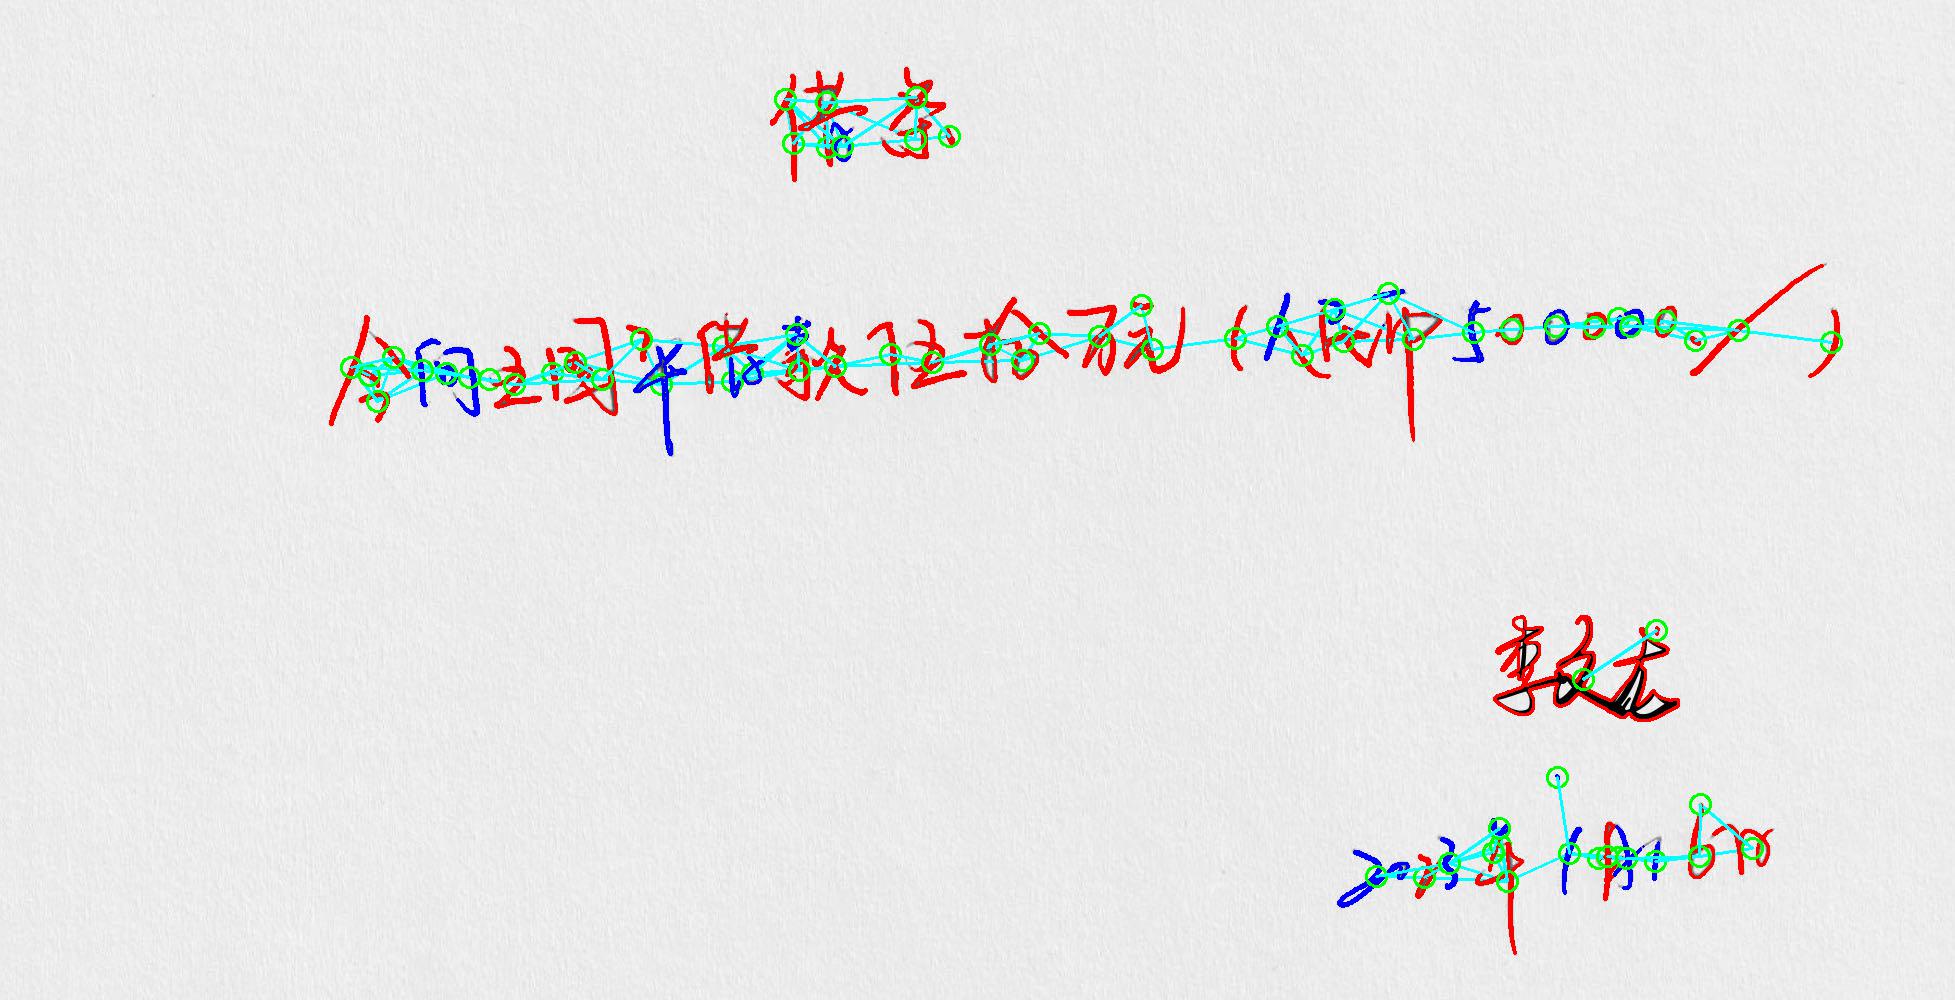 借条
今向王平借款伍拾万元(人民币500000)
李文
2023年1月16日